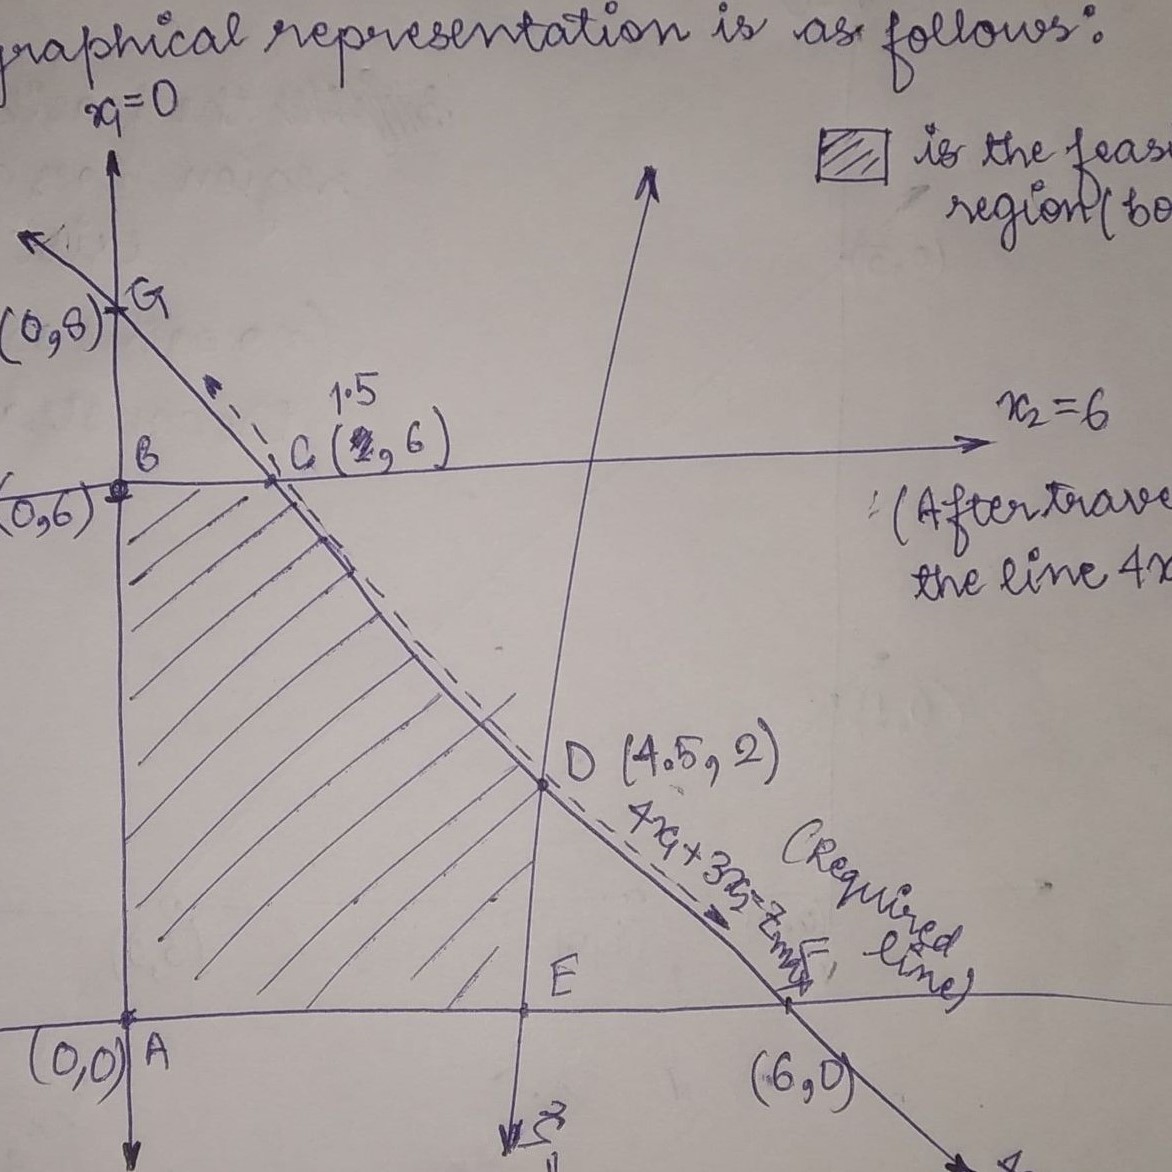 graphical representation is as follows:
x₁=0
is the feas
region (bo
G
(0,8)
1.5
x₂=6
B
C (, 6)
(0,6)
(After trave
the line 4x
D (4.5, 2)
4x₁+3x₂=Zmax
(Required
line)
E
(0,0) A
(6,0)